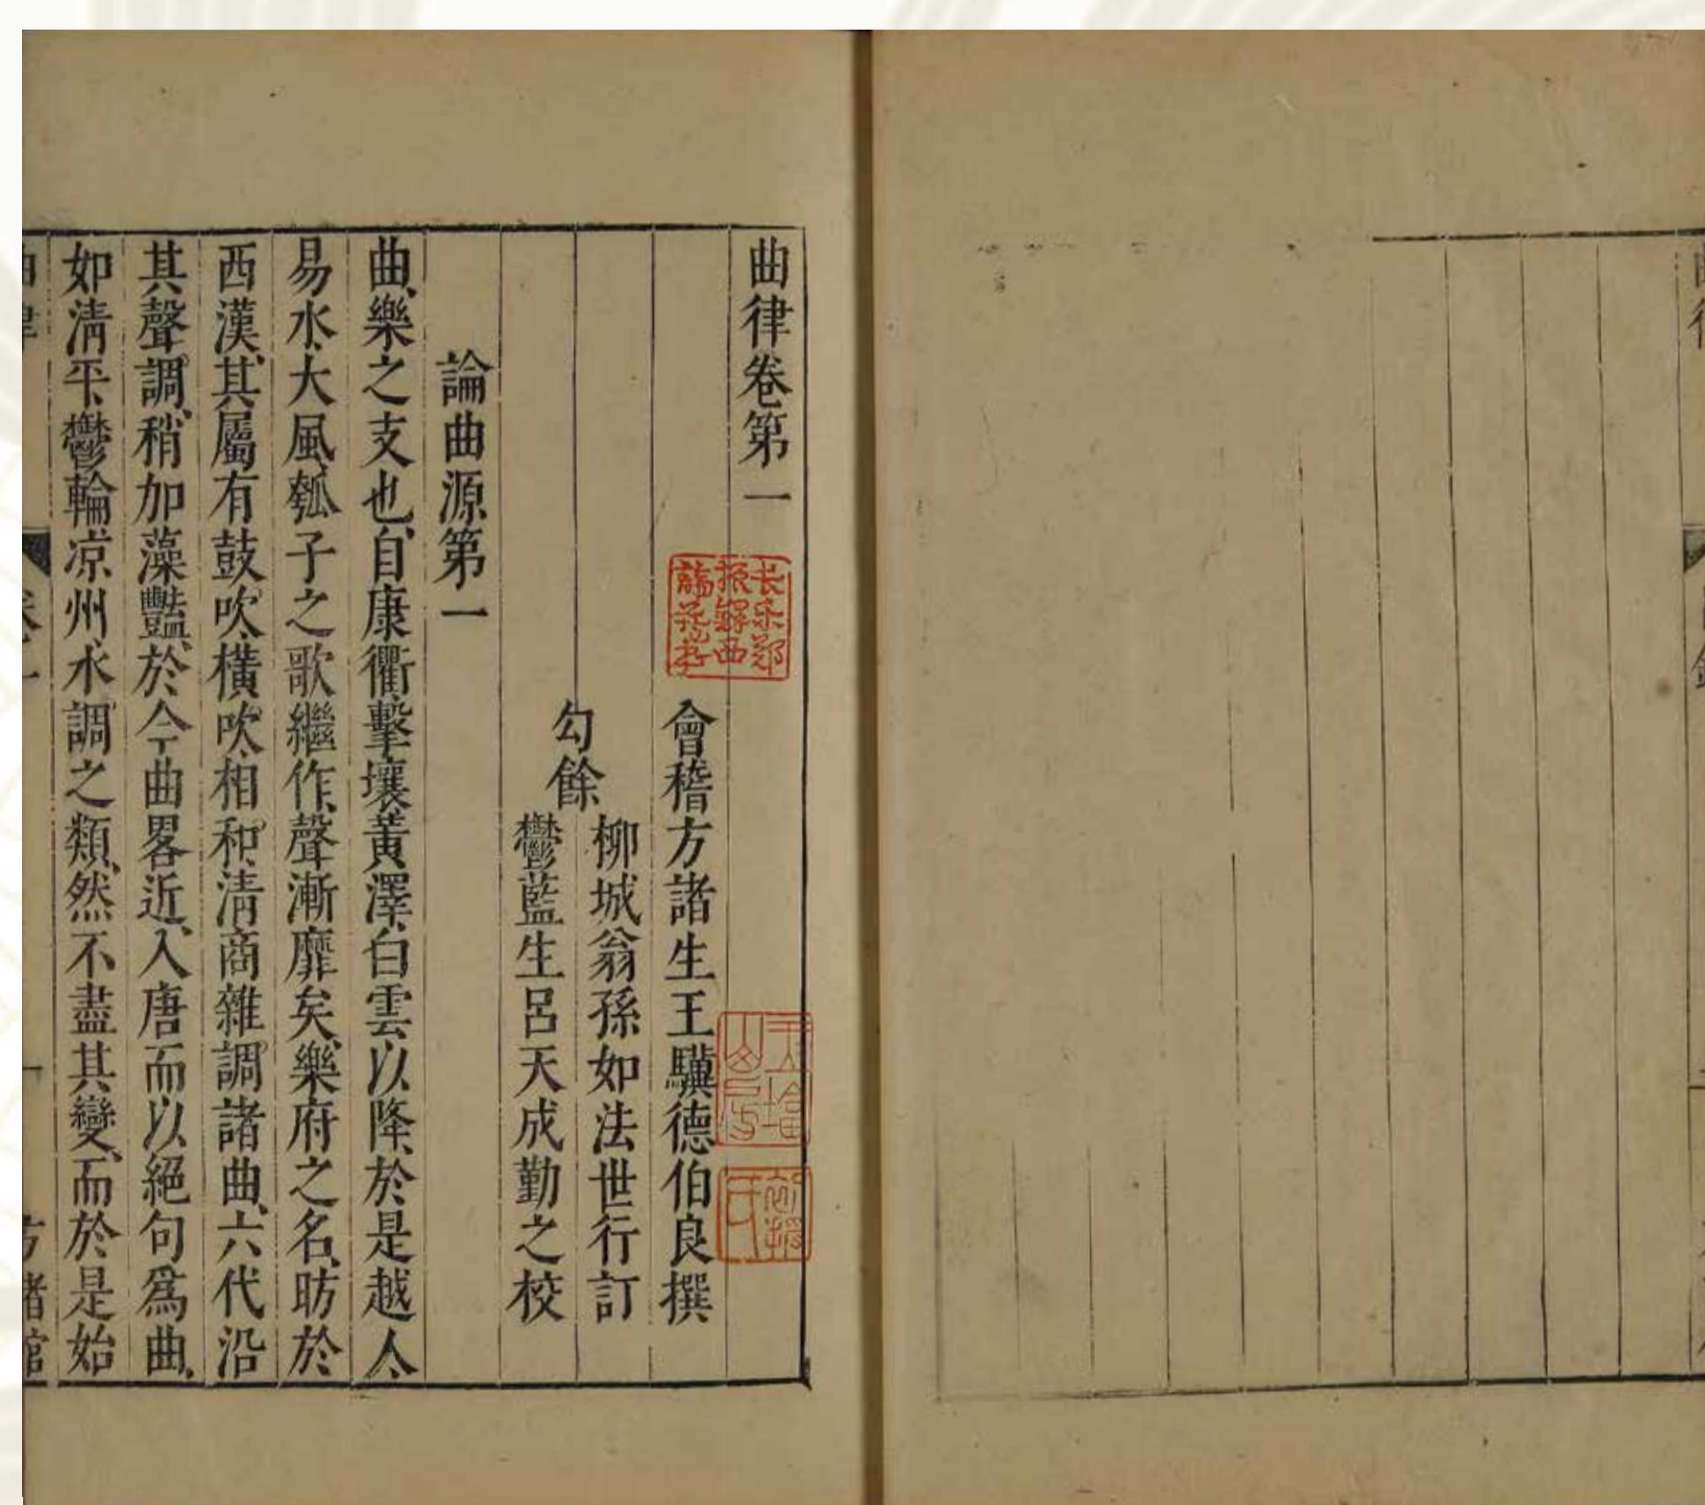 曲律卷第一
會稽方諸生王驥德伯良撰
勾餘
柳城翁孫如法世行訂
鬱藍生呂天成勤之校
論曲源第一
曲、樂之支也、自康衢擊壤黃澤、白雲以降、於是越人、
易水、大風、瓠子之歌繼作、聲漸靡矣、樂府之名、昉於
西漢、其屬有鼓吹、橫吹、相和、淸商、雜調諸曲、六代沿
其聲調、稍加藻豔、於今曲畧近、入唐而以絕句爲曲、
如淸平、鬱輪、凉州、水調之類、然不盡其變、而於是始
長樂鄭
振鐸西
諦藏書